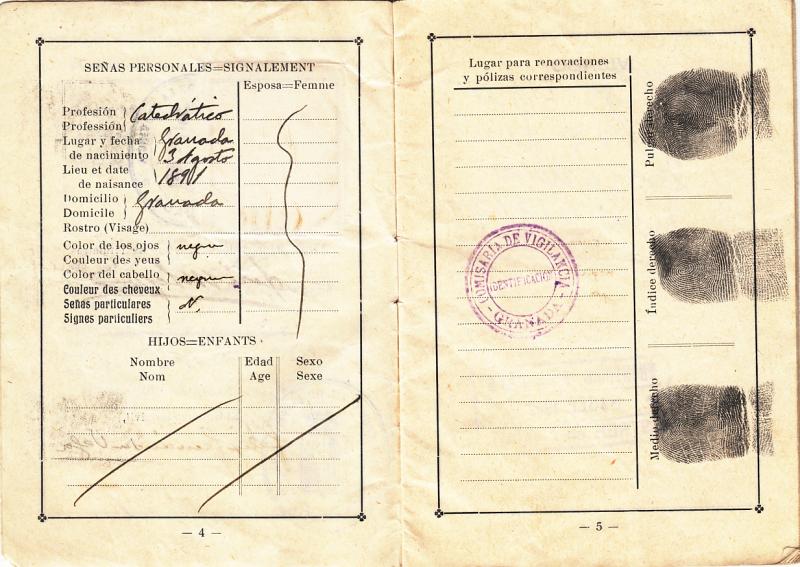 SEÑAS PERSONALES=SIGNALEMENT
Esposa=Femme
Profesión } Catedrático
Profession
Lugar y fecha } Granada
de nacimiento 3 Agosto
Lieu et date 1891
de naisance
Domicilio } Granada
Domicile
Rostro (Visage)
Color de los ojos } negro
Couleur des yeus
Color del cabello } negro
Couleur des cheveux
Señas particulares } N.
Signes particuliers
HIJOS=ENFANTS
Nombre Edad Sexo
Nom Age Sexe
— 4 —
Lugar para renovaciones
y pólizas correspondientes
COMISARIA DE VIGILANCIA
IDENTIFICACION
- GRANADA -
Pulgar derecho
Índice derecho
Medio derecho
— 5 —